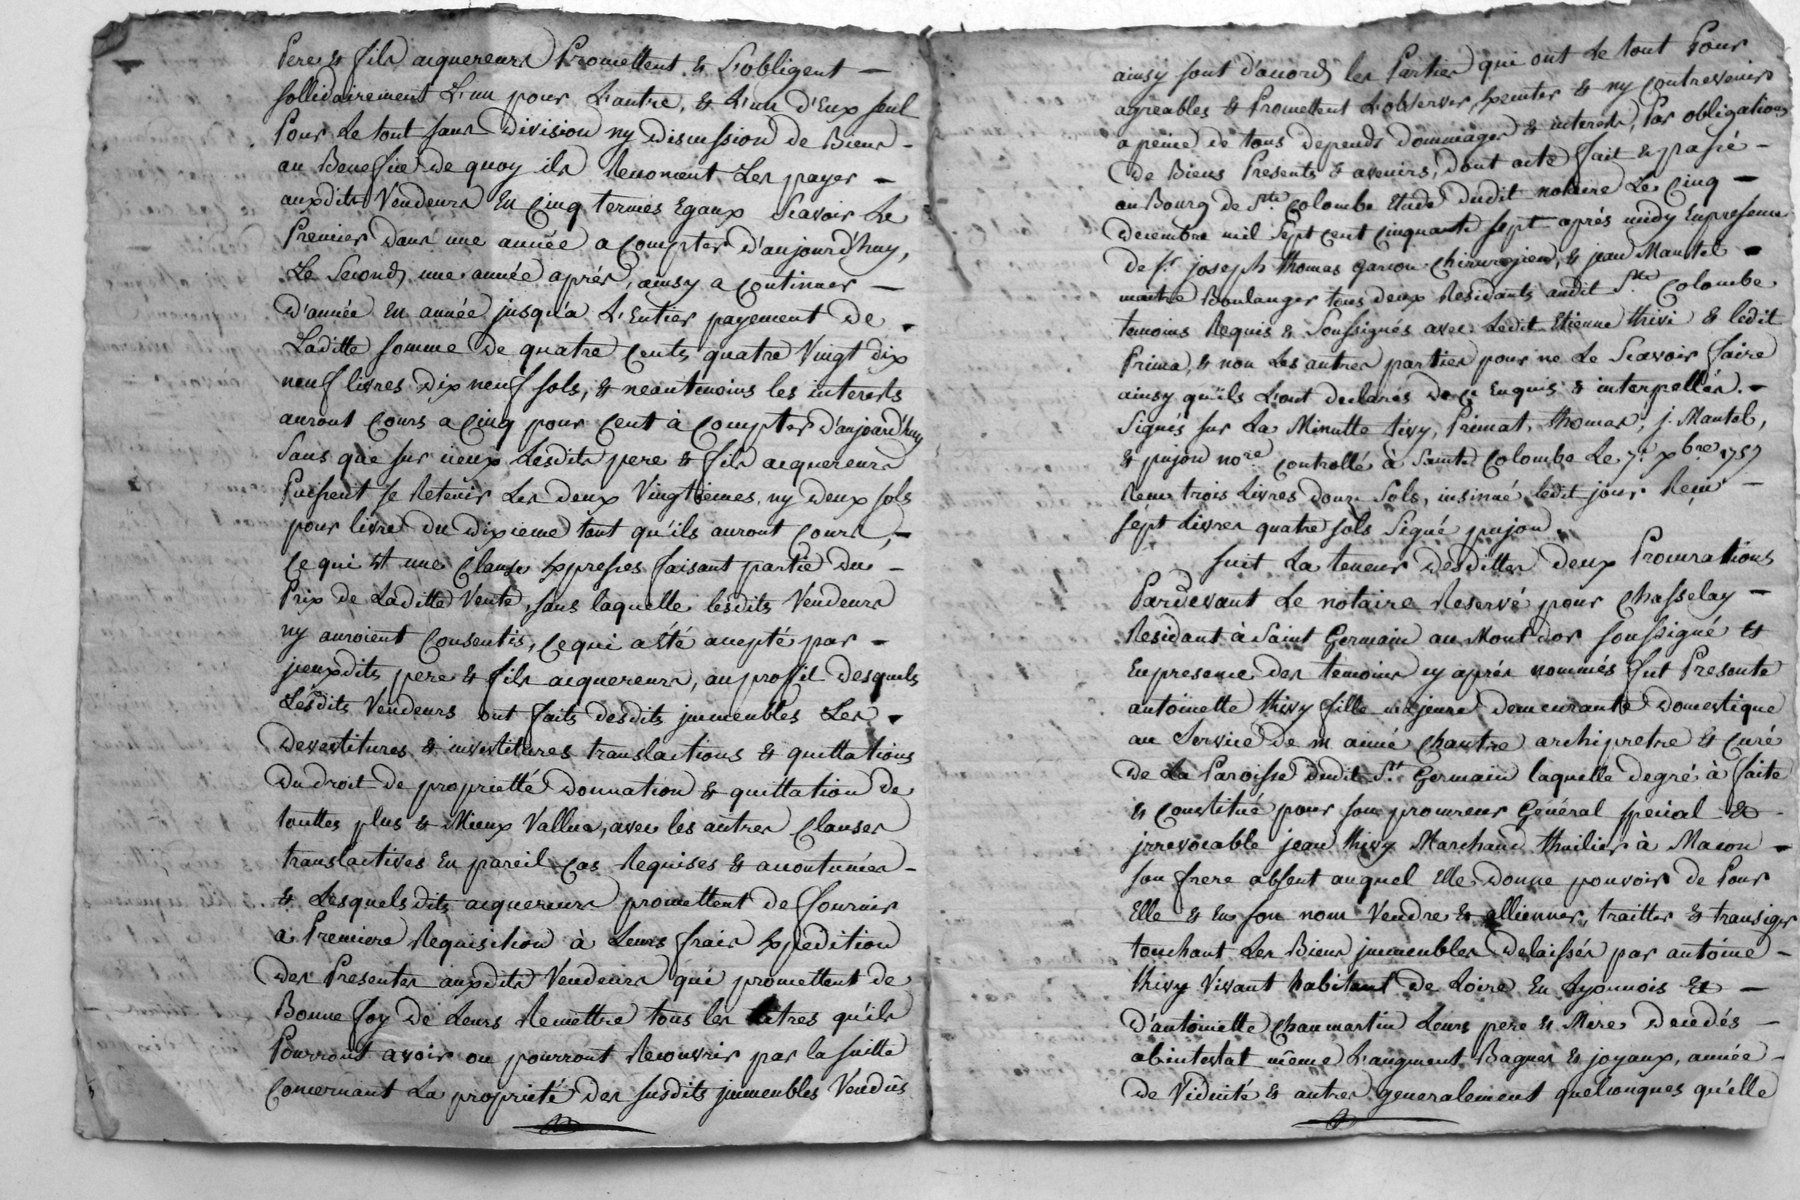 Pere & fils acquereurs Promettent & S'obligent —
sollidairement L'un pour L'autre, & L'un d'Eux seul
Pour Le tout sans division ny discussion de Biens —
au Benefice de quoy ils Renoncent Les payer —
auxdits Vendeurs En Cinq termes Egaux Scavoir Le
Premier dans une année a Compter d'aujourd'huy,
Le Second une année aprés, ainsy a Continuer —
d'année en année jusqu'a L'Entier payement de
Laditte somme de quatre Cents quatre Vingt dix
neuf livres dix neuf sols, & neantmoins les interets
auront Cours a Cinq pour Cent à Compter d'aujourd'huy
Sans que sur iceux Lesdits pere & fils acquereurs
Puissent se Retenir Les deux Vingtiemes, ny deux sols
pour livre du dixieme tant qu'ils auront Cours, —
Ce qui est une Clause Expresses faisant partie du —
Prix de Laditte Vente, sans laquelle lesdits Vendeurs
ny auroient Consentis, Ce qui a été accepté par —
jceuxdits pere & fils acquereurs, au profit desquels
Lesdits Vendeurs ont faits desdits jmmeubles Les
devestitures & investitures translactions & quittations
du droit de proprietté donnation & quittation de
touttes plus & Mieux Vallue, avec les autres Clauses
translactives En pareil Cas Requises & accoutumées —
& Lesquelsdits acquereurs promettent de fournir
a Premiere Requisition à Leurs frais Expedition
des Presentes auxdits Vendeurs qui promettent de
Bonne foy de Leurs Remettre tous les titres qu'ils
Pourront avoir ou pourront Recouvrir par la suitte
Concernant La propriété des susdits jmmeubles Vendûs
ainsy sont d'accord les Parties qui ont Le tout Pour
agreables & Promettent L'observer & ny Contrevenir
a peine de tous depends dommages & interets, Par obligations
de Biens Presents & avenirs, dont acte fait & passé —
au Bourg de Ste Colombe Etude dudit notaire Le Cinq —
decembre mil Sept Cent Cinquante sept aprés midy Enpresence
de sr. joseph thomas garcon Chirurgien, & jean Mantel
maitre Boulanger tous deux Residants audit Ste Colombe
temoins Requis & Soussignés avec Ledit Etienne thivi & ledit
Prima, & non Les autres parties pour ne Le Scavoir faire
ainsy qu'ils L'ont declarés de Ce Enquis & interpellés. —
Signés sur La Minutte tivy, Primat, thomas, j. Mantel,
& pujon nore Controllé à Sainte Colombe Le 7e. xbre 1757
Recu trois Livres douze Sols, insinué ledit jour Reçu —
sépt Livres quatre sols Signé pujon.
suit La teneur desdittes deux Procurations
Pardevant Le notaire Reservé pour Chasselay —
Residant à Saint Germain au Mont dor soussigné &
Enpresence des temoins cy aprés nommés fut Presente
antoinette thivy fille majeure demeurante domestique
au Service de m aimé Chantre archipretre & Curé
de La Paroisse dudit St Germain laquelle degré à faite
& Constitué pour son procureur Général special &
jrrevocable jean thivy Marchand thuilier à Macon —
son frere absent auquel Elle donne pouvoir de Pour
Elle & En son nom Vendre & allienner, traitter & transiger
touchant Les Biens jmmeubles delaissés par antoine —
thivy Vivant habitant de Loire En Lyonnois & —
d'antoinette Chaumartin Leurs pere & Mere decedés —
abintestat même L'augment Bagues & joyaux, année —
de Viduité & autres generalement quelconques qu'elle